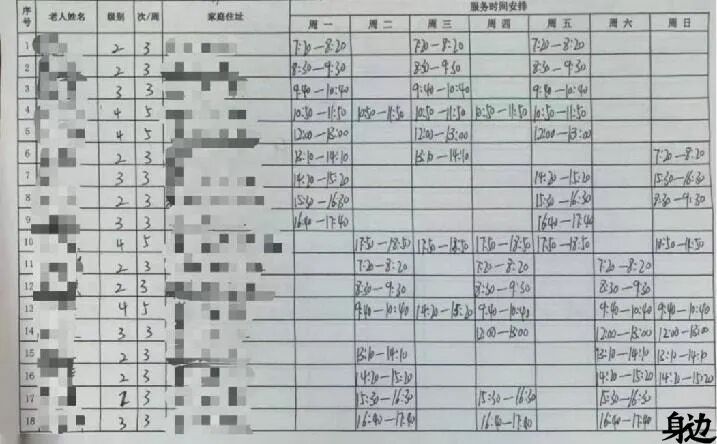 服务时间安排
序号 老人姓名 级别 次/周 家庭住址 周一 周二 周三 周四 周五 周六 周日
1 2 3 7:20—8:20 7:20—8:20 7:20—8:20
2 2 3 8:30—9:30 8:30—9:30 8:30—9:30
3 3 3 9:40—10:40 9:40—10:40 9:40—10:40
4 4 5 10:50—11:50 10:50—11:50 10:50—11:50 10:50—11:50 10:50—11:50
5 4 5 12:00—13:00 12:00—13:00 12:00—13:00
6 2 3 13:10—14:10 13:10—14:10 7:20—8:20
7 3 3 14:20—15:20 14:20—15:20 15:30—16:30
8 2 3 15:30—16:30 15:30—16:30 8:30—9:30
9 3 3 16:40—17:40 16:40—17:40
10 4 5 17:50—18:50 17:50—18:50 17:50—18:50 17:50—18:50 10:50—11:50
11 2 3 7:20—8:20 7:20—8:20 7:20—8:20
12 2 3 8:30—9:30 8:30—9:30 8:30—9:30
13 4 5 9:40—10:40 14:20—15:20 9:40—10:40 9:40—10:40 9:40—10:40
14 3 3 12:00—13:00 12:00—13:00 12:00—13:00
15 2 3 13:10—14:10 13:10—14:10 13:10—14:10
16 2 3 14:20—15:20 14:20—15:20 14:20—15:20
17 2 3 15:30—16:30 15:30—16:30 15:30—16:30
18 3 3 16:40—17:40 16:40—17:40 16:40—17:40
身边